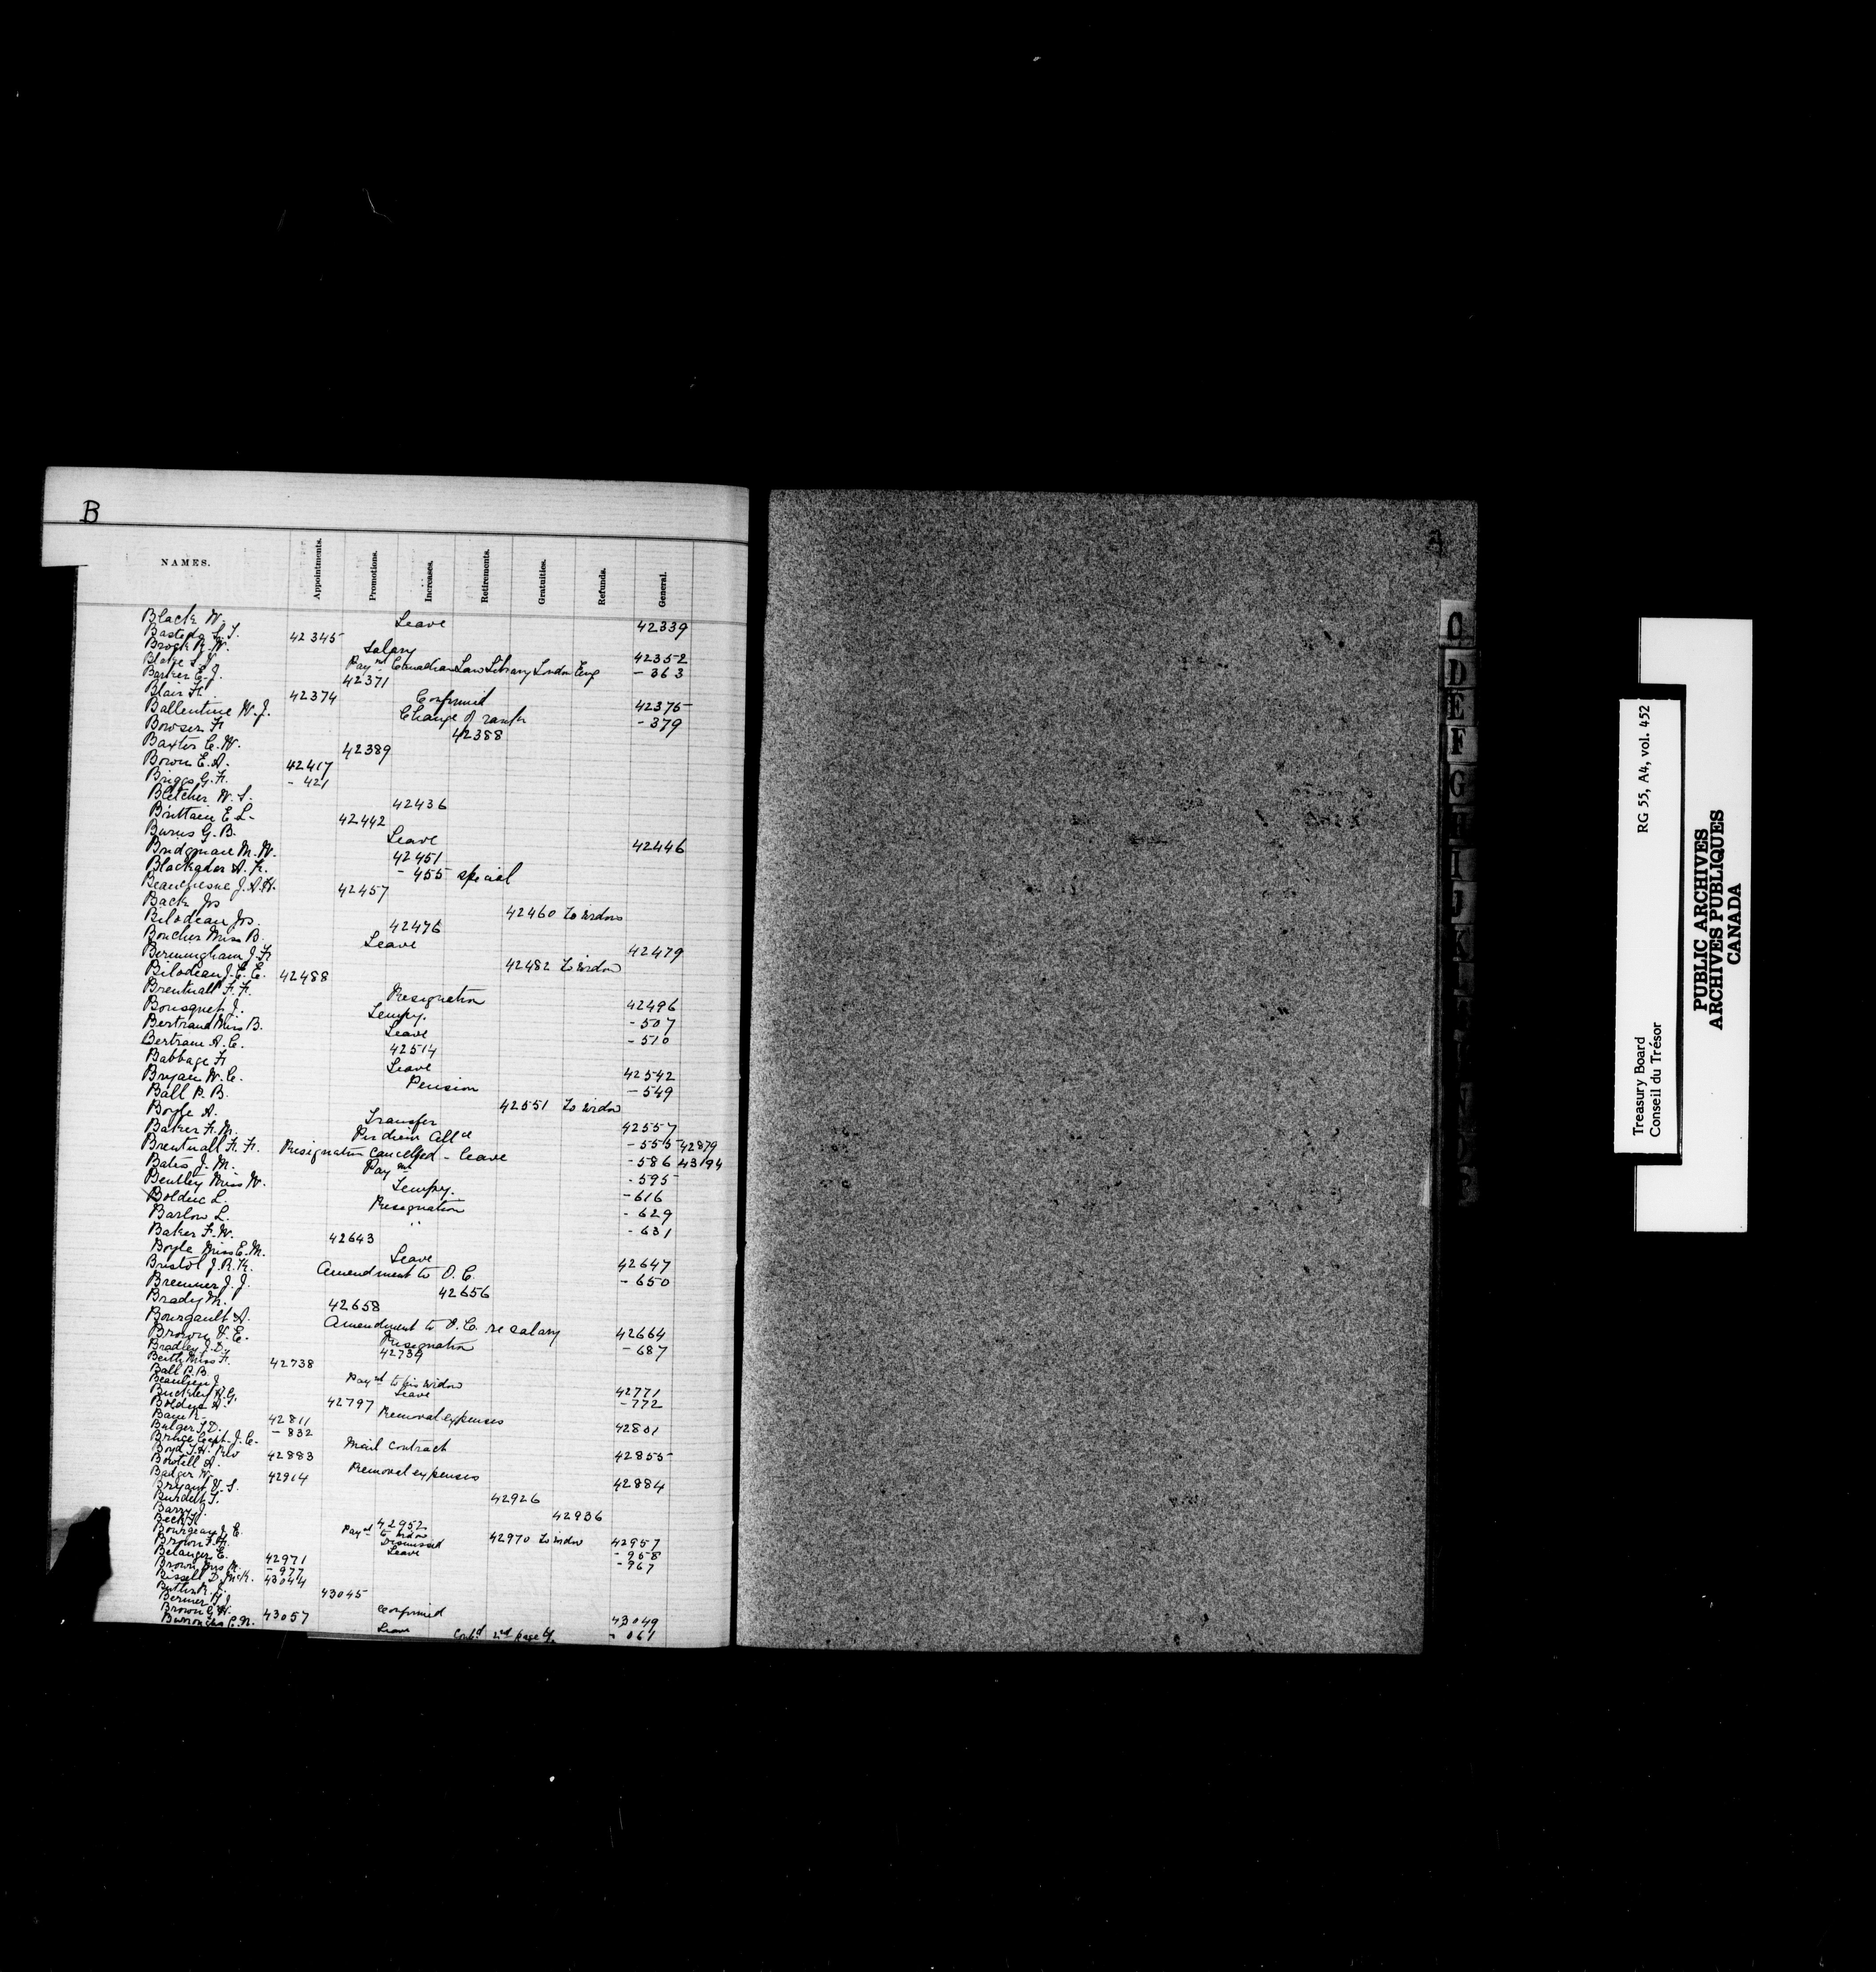 B
NAMES. Appointments. Promotions. Increases. Retirements. Gratuities. Refunds. General.
Black W. Leave 42339
Bastedo S. T. 42345
Brock R. W. Salary 42352
Blake S. V. Paymt Canadian Law Library London Eng - 363
Barker E. J. 42371
Blair H. 42374 Confirmed 42375
Ballentine W. J. Change of rank - 379
Bowser H 42388
Baxter C. W. 42389
Bown E. A. 42417
Briggs G. H. - 421
Bletcher W. S. 42436
Brittain E. L. 42442
Burns G. B. Leave 42446
Bridgman M. W. 42451
Blackadar A. K. - 455 special
Beauchesne J. A. H. 42457
Back Jos 42460 To widow
Bilodeau Jos. 42476
Boucher Miss B. Leave 42479
Bermingham J. H 42482 To widow
Bilodeau J. E. E. 42488
Brentnall F. F. Resignation 42496
Bousquet J. Tempy. - 507
Bertrand Miss B. Leave - 510
Bertram A. C. 42514
Babbage H Leave 42542
Bryan W. C. Pension - 549
Ball R. B. 42551 To widow
Boyle A. Transfer 42557
Baker H. M. Per diem Allce - 555 42879
Brentnall F. F. Resignation cancelled - leave - 586 43194
Bates J. M. Paymt - 595
Bentley Miss W. Tempy. - 616
Bolduc L. Resignation - 629
Barlow L. " - 631
Baker F. W. 42643
Boyle Miss E. M. Leave 42647
Bristol J. R. K. Amendment to O. C. - 650
Bremner J. J. 42656
Brady M. 42658
Bourgault A. Amendment to O. C. re salary 42664
Brown V. E. Resignation - 687
Bradley J. D. 42739
Beith Miss H. 42738
Ball R. B. Paymt to his widow 42771
Beaulieu J. Leave - 772
Buckley H. G. 42797
Bolduc A. Removal expenses 42801
Bain R. 42811
Bulger T. D. - 832
Bruce Capt. J. C. Mail Contract 42855
Boyd T. H. Rev 42883
Bowtell A. Removal expenses 42884
Badger W. 42914
Bryant V. S. 42926
Burdett T. 42936
Barry J. 42952
Beck H Paymt to widow 42957
Bourgeau J. E. 42970 To widow
Brown F. H. Dismissed - 958
Belanger E. Leave - 967
Brown Mrs M. 42971
Bissell D. McK. - 977
Butler R. J. 43044
Bermer H J. 43045
Brown G. W. Confirmed 43049
Burroughs C. N. 43057 Leave - 061
Contd 2nd page
C
D
E
F
G
H
I
J
K
L
Treasury Board RG 55, A4, vol. 452
Conseil du Trésor
PUBLIC ARCHIVES
ARCHIVES PUBLIQUES
CANADA